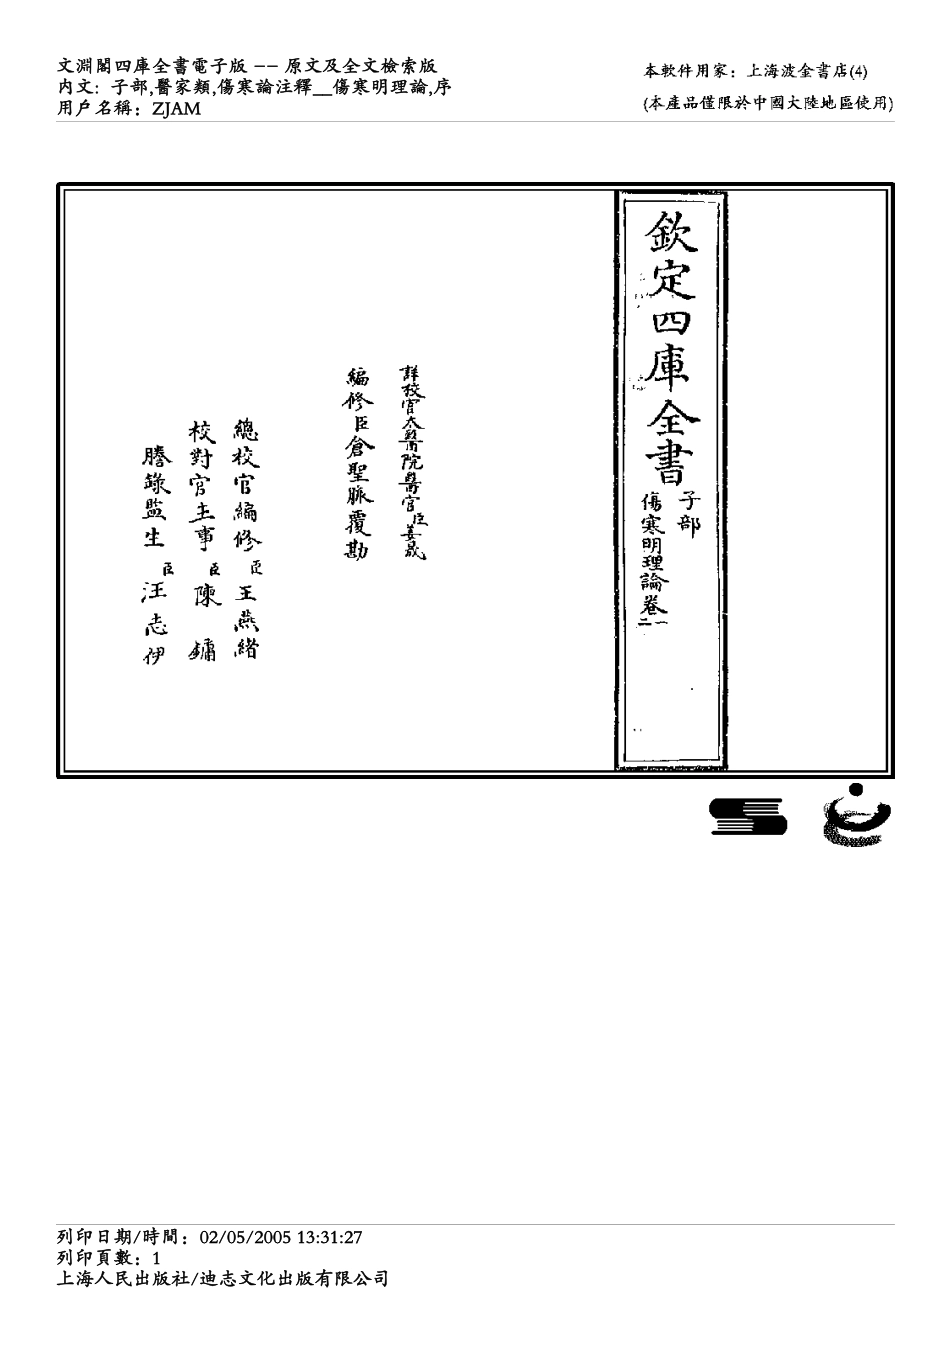 文淵閣四庫全書電子版 –– 原文及全文檢索版
內文: 子部,醫家類,傷寒論注釋__傷寒明理論,序
用戶名稱: ZJAM
本軟件用家: 上海波金書店(4)
(本產品僅限於中國大陸地區使用)
欽定四庫全書
子部
傷寒明理論卷一
二
詳校官太醫院醫官臣姜晟
編修臣倉聖脈覆勘
總校官編修臣王燕緒
校對官主事臣陳鏞
謄錄監生臣汪志伊
列印日期/時間: 02/05/2005 13:31:27
列印頁數: 1
上海人民出版社/迪志文化出版有限公司